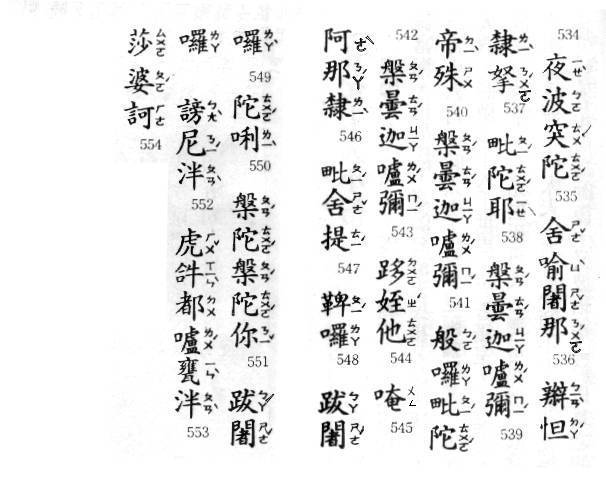 534 夜波突陀 535 舍喻闍那 536 辮怛
隸拏 537 毗陀耶 538 槃曇迦嚧彌 539
帝殊 540 槃曇迦嚧彌 541 般囉毗陀
542 槃曇迦嚧彌 543 跢姪他 544 唵 545
阿那隸 546 毗舍提 547 鞞囉 548 跋闍
囉 549 陀唎 550 槃陀槃陀你 551 跋闍
囉謗尼泮 552 虎𤙖都嚧甕泮 553
莎婆訶 554